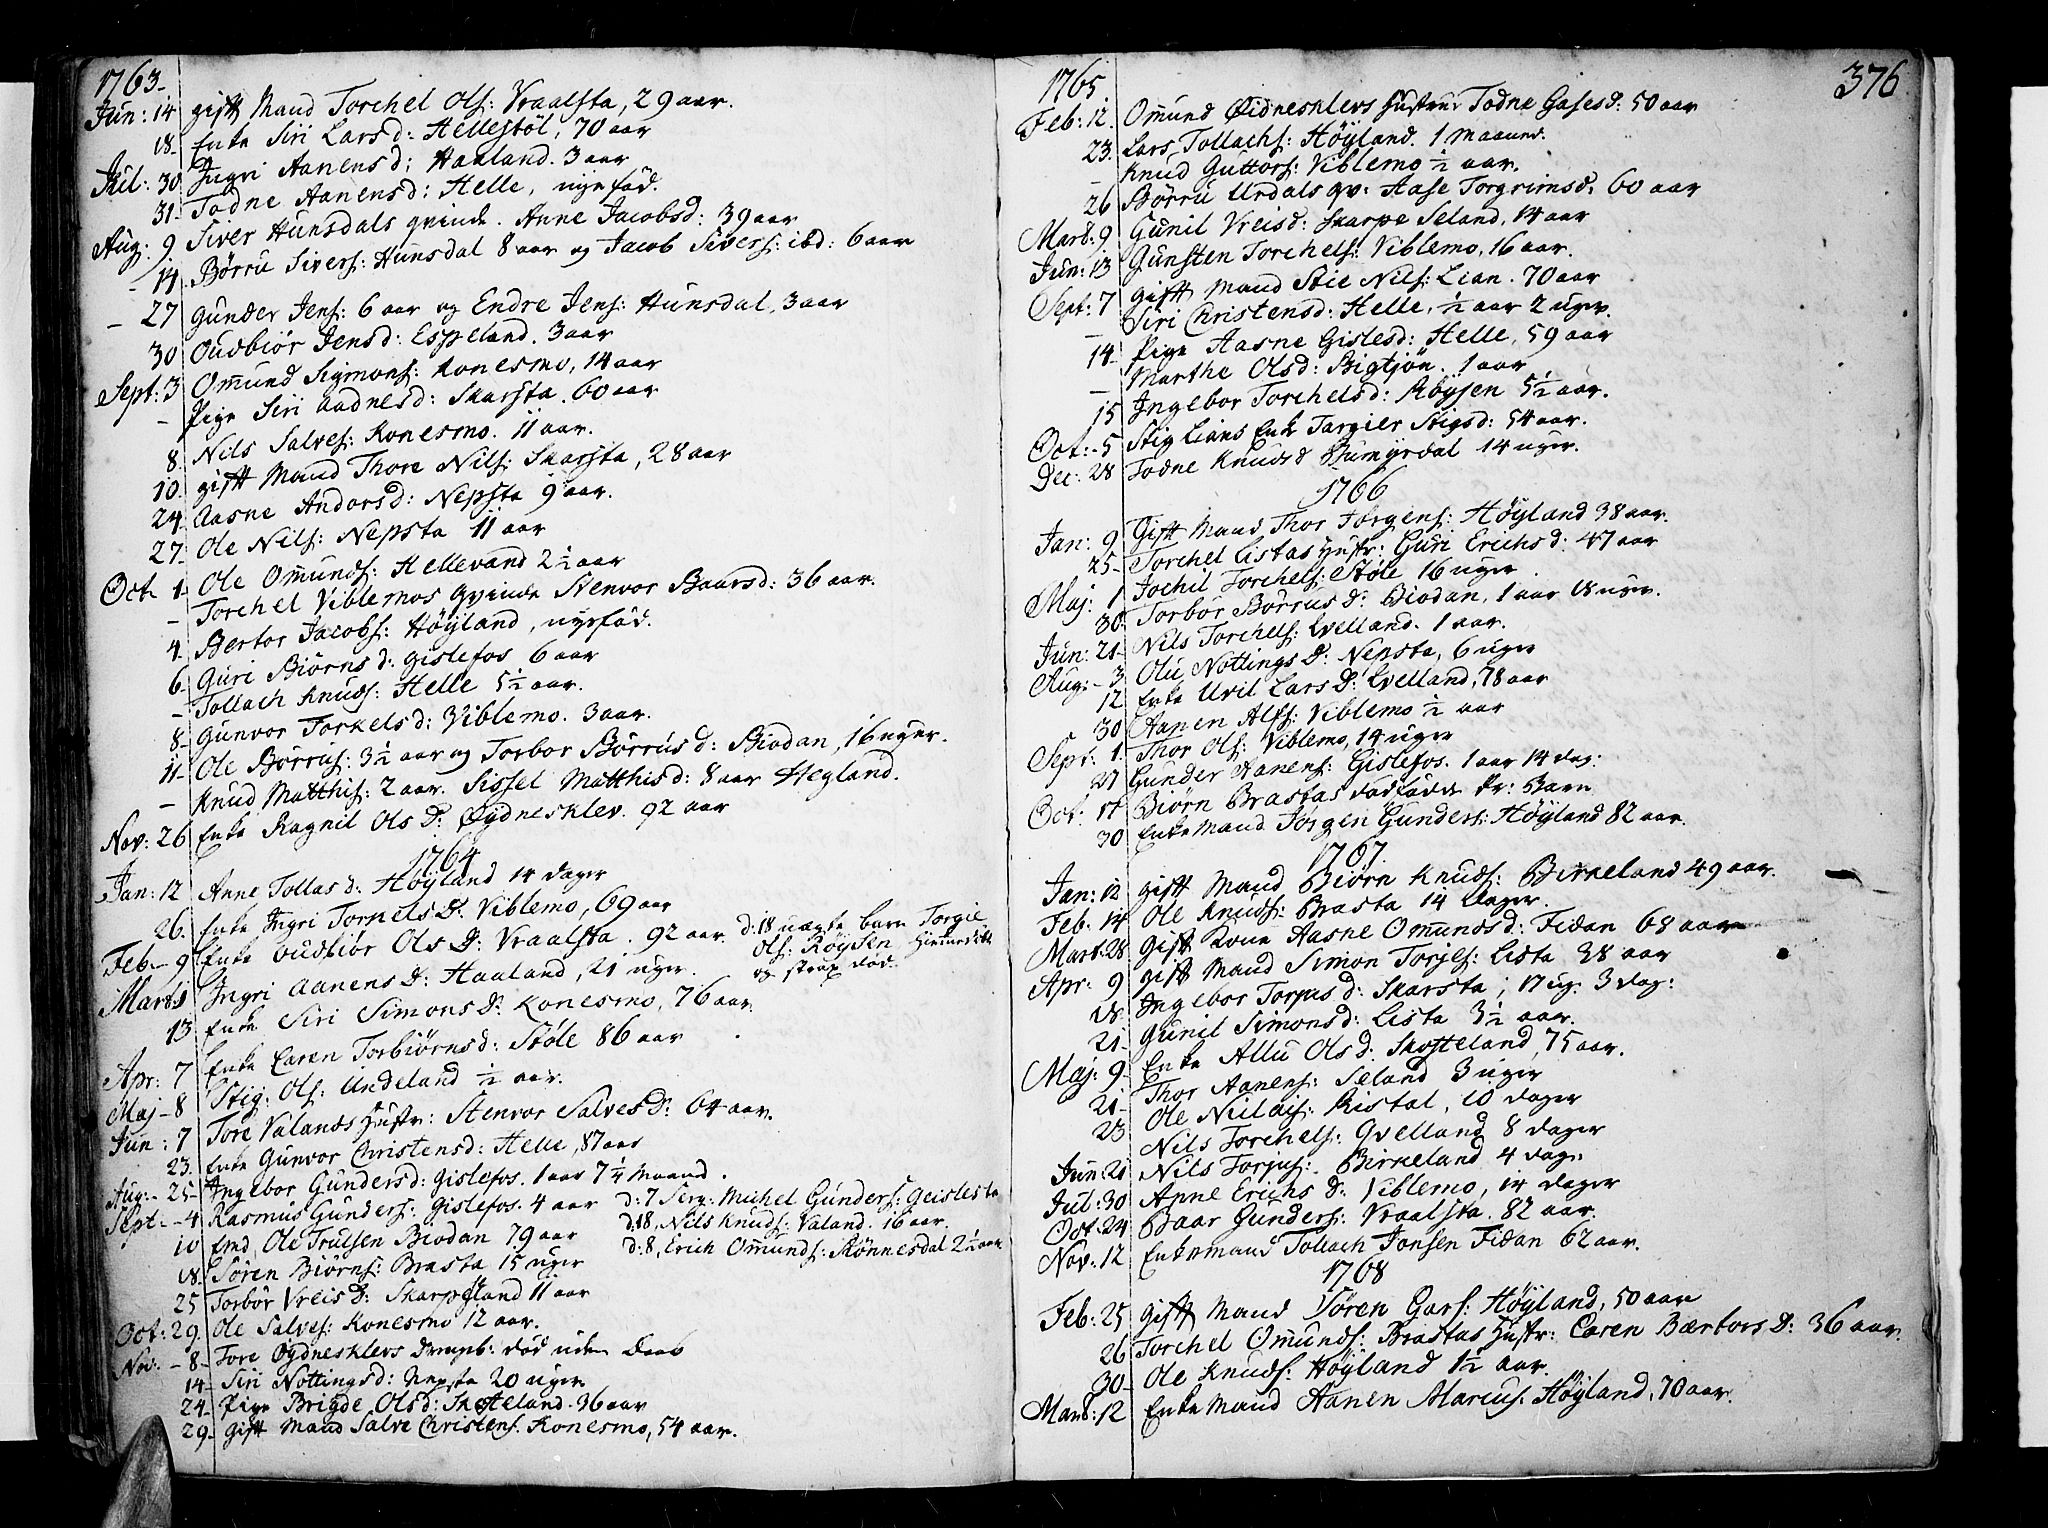 1763
Jun: 14 gift Mand Torchel Ols: Vraalsta, 29 aar.
18 Enke Siri Larsd: Hellestöl, 70 aar
Jul: 30 Ingri Aanensd: Haaland. 3 aar
31 Todne Aanensd: Helle, nyefød.
Aug: 9 Siver Hunsdals qvinde. Anne Jacobsd: 39 aar
14 Börru Sivers: Hunsdal 8 aar og Jacob Sivers: ibd: 6 aar
27 Gunder Jens: 6 aar og Endre Jens: Hunsdal, 3 aar
30 Oudbiör Jensd: Espeland. 3 aar
Sept: 3 Omund Sigmons: Konesmo, 14 aar
- Pige Siri Aadnesd: Skarsta. 60 aar
8 Nils Salves: Konesmo. 11 aar.
10 gift Mand Thore Nils: Skarsta, 28 aar
24 Aasne Andorsd: Nepsta 9 aar.
27 Ole Nils: Nepsta 11 aar
Oct 1 Ole Omunds: Hellevand 2½ aar
- Torchel Viblemos qvinde Stenvor Baarsd: 36 aar.
4 Bertor Jacobs: Höyland, nyefød.
6 Guri Biörnsd: Gislefos 6 aar
- Tollach Knuds: Helle 5½ aar.
8 Gunvor Torkelsd: Viblemo. 3 aar.
11 Ole Börrus: 3½ aar og Torbor Börrusd: Biodan, 16 uger.
- Knud Matthis: 2 aar. Sissel Matthisd: 8 aar Hegland.
Nov: 26 Enke Ragnil Ols D: Öydnesklev. 92 aar
1764
Jan: 12 Anne Tollasd: Höyland 14 dager
26 Enke Ingri Torkels D: Viblemo, 69 aar
Feb: 9 Enke Oudbiör Ols D: Vraalsta. 92 aar. d: 18 uægte barn Torgie
Ols: Röysen hiemedøbt
og strax død.
Mart: Ingri Aanens D: Haaland, 21 uger.
13 Enke Siri Simons D: Konesmo, 76 aar.
Apr: 7 Enke Caren Torbiörnsd: Stöle 86 aar
Maj 8 Stig: Ols: Undeland ½ aar.
Jun: 7 Tore Valands Hustr: Stenvor Salves D: 64 aar.
23 Enke Gunvor Christensd: Helle, 87 aar
Aug: 25 Ingebor Gundersd: Gislefos. 1 aar 7¼ Maaned.
Sept: 4 Rasmus Gunders: Gislefos. 4 aar d: 7 Serg: Michel Gunders: Geislesta
10 Ole Trulsen Biodan 79 aar d. 18, Nils Knuds: Valand. 16 aar.
18 Sören Biörns: Brasta 15 uger d: 8, Erich Omunds: Rönnesdal 2½ aar
25 Torbör Vreis D: Skarpeland 11 aar
Oct: 29 Ole Salves: Konesmo 12 aar.
Nov: 8 Tore Öydnesklevs død uden Daab
14 Siri Nottingsd: Nepsta 20 uger
24 Pige Brigde Olsd: Skofteland. 36 aar
29 gift Mand Salve Christens: Konesmo, 54 aar.
376
1765
Feb: 12 Omund Öidnesklevs Hustrue Todne Gasesd: 50 aar
23 Lars Tollachs: Höyland. 1 Maaned.
- Knud Guttors: Viblemo ½ aar.
26 Börru Urdals qv: Aase Torgrimsd: 60 aar
Mart: 9 Gunil Vreisd: Skarpe Seland, 14 aar
Jun: 13 Gunsten Torchels: Viblemo, 16 aar.
Sept: 7 Gift Mand Stie Nils: Lian. 70 aar
Siri Christensd: Helle, ½ aar 2 uger.
14 Pige Aasne Gislesd: Helle, 59 aar
- Marthe Olsd: Bigtjön. 1 aar
15 Ingebor Torchelsd: Röysen 5½ aar.
Oct: 5 Stig Lians Enke Targier Stigsd: 54 aar.
Dec: 28 Todne Knuds d Humyrdal 14 uger.
1766
Jan: 9 Gift Mand Thor Törgens: Höyland 38 aar.
25 Torchel Listas Hustr: Guri Erichsd: 47 aar
Maj: 1 Jochil Torchels: Stöle 16 uger
30 Torbor Börrus D: Biodan, 1 aar 18 uger.
Jun: 21 Nils Torchels: Qvelland. 1 aar.
Aug: 3 Olu Nottings D: Nepsta, 6 uger
12 Enke Uvil Lars D: Qvelland, 78 aar
30 Aanen Alfs: Viblemo ½ aar
Sept: 1 Thor Ols: Viblemo, 14 uger
27 Gunder Aanens: Gislefos. 1 aar 14 dag:
Oct: 17 Biörn Brastas dødfødde Barn
30 Enke Mand Jörgen Gunders: Höyland 82 aar.
1767
Jan: 12 gift Mand Biörn Knuds: Birkeland 49 aar.
Feb: 14 Ole Knuds: Brasta 14 dager.
Mart: 28 Gift Kone Aasne Omundsd: Fidan 68 aar
Apr: 9 gift Mand Simon Torjes: Lista 38 aar
18 Ingebor Torjusd: Skarsta, 17 ug: 3 dag:
21 Gunil Simonsd: Lista 3½ aar.
Maj: 9 Enke Allu Ols D: Skofteland, 75 aar.
21 Thor Aanens: Seland 3 uger
23 Ole Niclais: Ristal, 10 dager
Nils Torchels: Qvelland 8 dager
Jun: 21 Nils Torjus: Birkeland 4 dage
Jul: 30 Anne Erichs D: Viblemo, 14 dager
Oct: 24 Baar Gunders: Vraalsta. 82 aar.
Nov: 12 Enkemand Tollach Jonsen Fidan 62 aar.
1768
Feb: 25 gift Mand Sören Gars: Höyland, 50 aar
26 Torchel Omunds: Brastas Hustr: Caren Bærtors D: 36 aar.
30 Ole Knuds: Höyland 1½ aar.
Mart: 12 Enke Mand Aanen Marcus: Höyland, 70 aar.